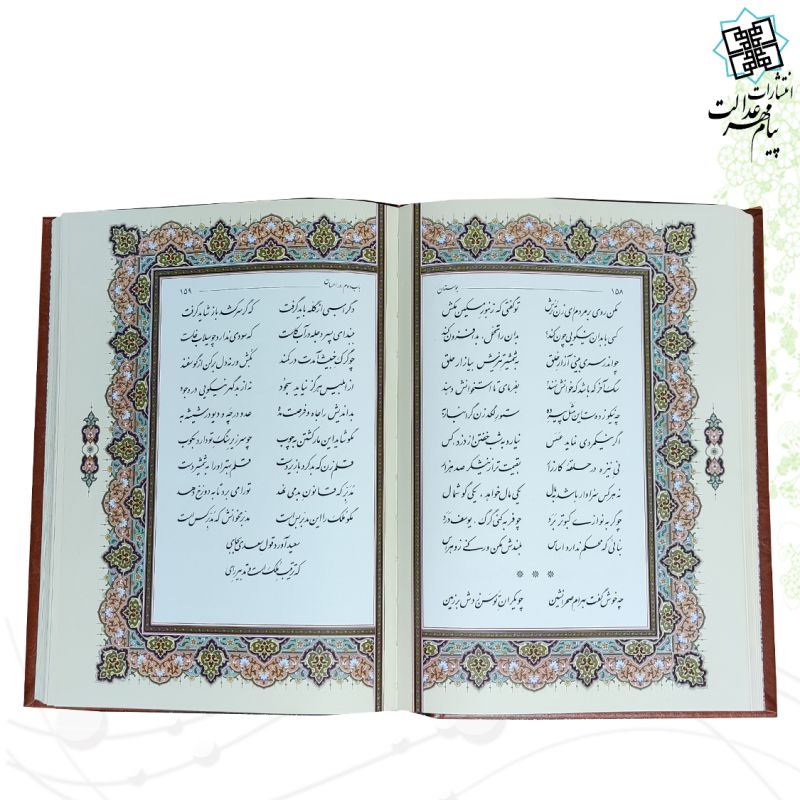 انتشارات
پیام مهر عدالت
بوستان ۱۵۸
مکن روی بر مردم ای زن ترش تو گفتی که زنبور مسکین مکش
کسی با بدان نیکویی چون کند؟ بدان را تحمل، بد افزون کند
چو اندر سری بینی آزار خلق به شمشیر تیزش بیازار حلق
سگ آخر که باشد که خوانش نهند؟ بفرمای تا استخوانش دهند
چه نیکو زده ست این مثل پیر ده ستور لگدزن گرانبار به
اگر نیکمردی نماید عسس نیارد به شب خفتن از دزد، کس
نی نیزه در حلقه کارزار بقیمت تر از نیشکر صد هزار
نه هر کس سزاوار باشد به مال یکی مال خواهد، یکی گوشمال
چو گربه نوازی کبوتر برد چو فربه کنی گرگ، یوسف درد
بنایی که محکم ندارد اساس بلندش مکن ور کنی زو هراس
* * *
چه خوش گفت بهرام صحرانشین چو یکران توسن زدش بر زمین
باب دوم در احسان ۱۵۹
دگر اسبی از گله باید گرفت که گر سرکشد باز شاید گرفت
ببند ای پسر دجله در آب کاست که سودی ندارد چو سیلاب خاست
چو گرگ خبیث آمدت در کمند بکش ورنه دل برکن از گوسفند
از ابلیس هرگز نیاید سجود نه از بد گهر نیکویی در وجود
بداندیش را جاه و فرصت مده عدو در چه و دیو در شیشه به
مگو شاید این مار کشتن به چوب چو سر زیر سنگ تو دارد بکوب
قلم زن که بد کرد با زیردست قلم بهتر او را به شمشیر دست
مدبر که قانون بد می نهد تو را می برد تا به دوزخ دهد
مگو ملک را این مدبر بس است مدبر مخوانش که مدبر کس است
سعید آورد قول سعدی بجای
که ترتیب ملک است و تدبیر رای